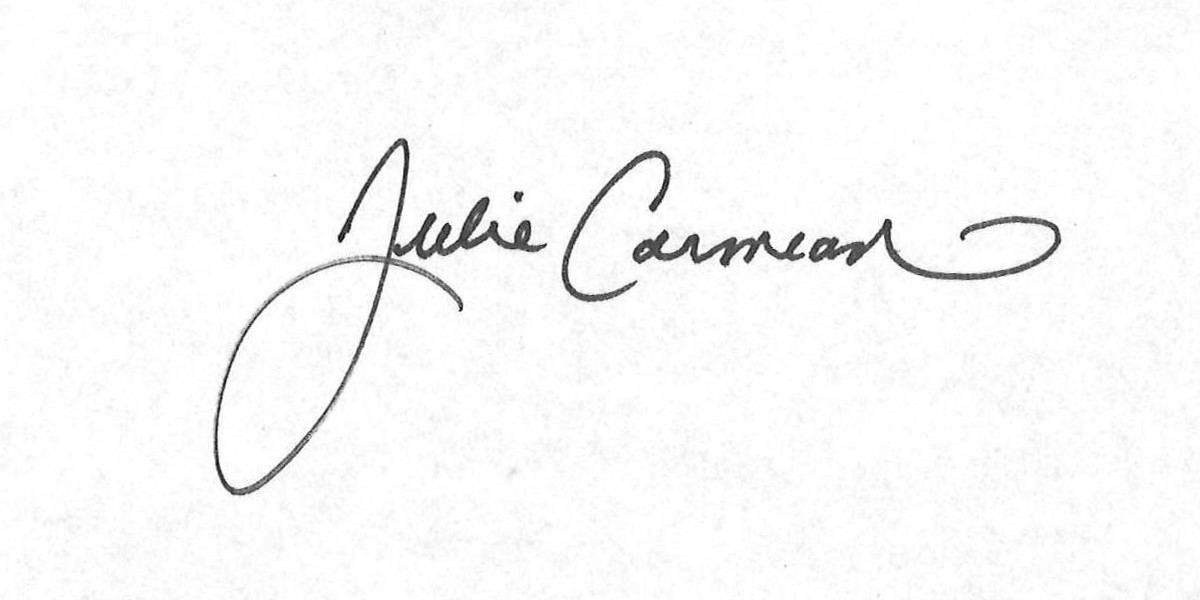 Julie Carmean